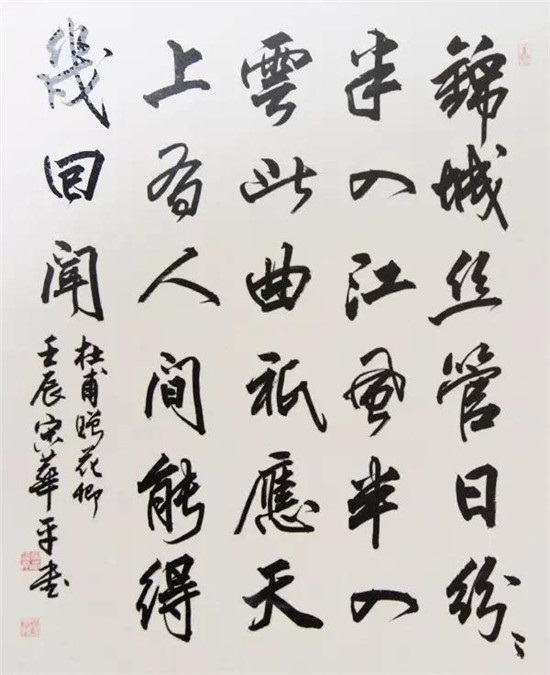 錦城丝管日紛〻
半入江風半入
雲此曲衹應天
上有人間能得
幾回闻
杜甫贈花卿
壬辰宋華平书